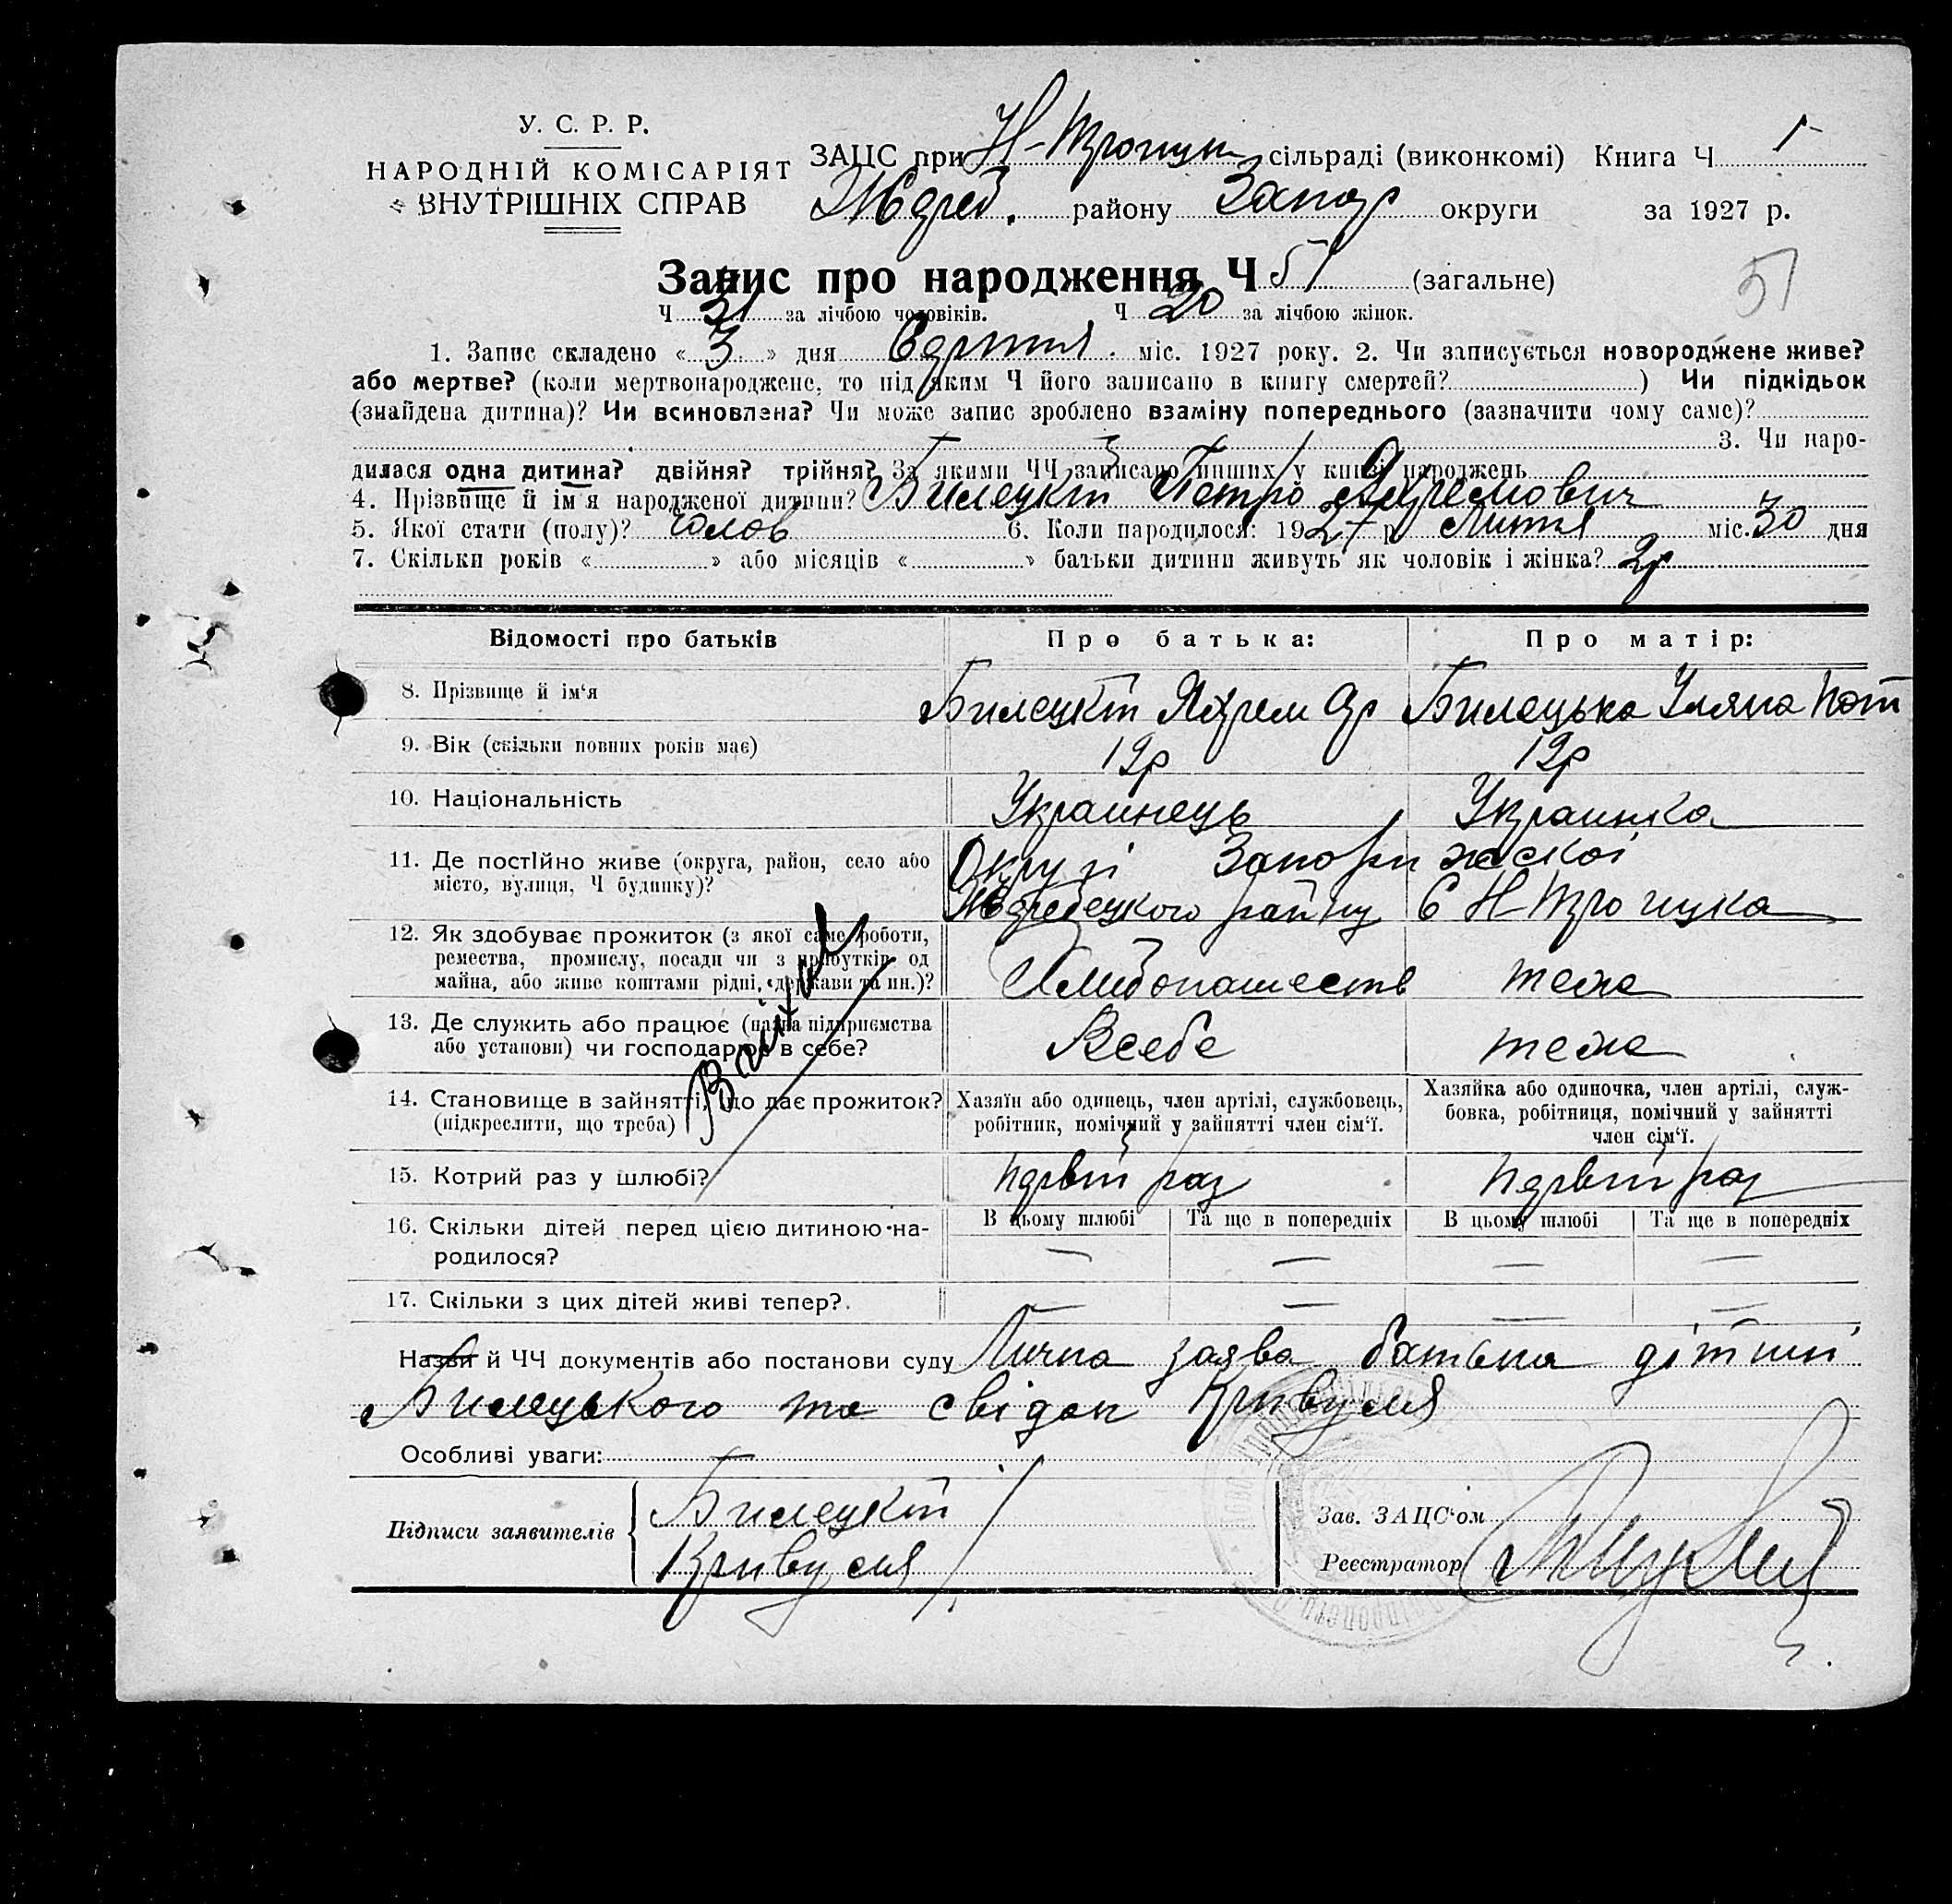 У. С. Р. Р.
НАРОДНІЙ КОМІСАРІЯТ
ВНУТРІШНІХ СПРАВ
ЗАЦС при сільраді (виконкомі) Книга Ч 1
району Запор округи за 1927 р.
Запис про народження Ч 51 (загальне)
51
Ч 31 за лічбою чоловіків. Ч 20 за лічбою жінок.
1. Запис складено « 3 » дня Серпня міс. 1927 року. 2. Чи записується новороджене живе?
або мертве? (коли мертвонароджене, то під яким Ч його записано в книгу смертей? ) Чи підкідьок
(знайдена дитина)? Чи всиновлена? Чи може запис зроблено взаміну попереднього (зазначити чому саме)?
3. Чи наро-
дилася одна дитина? двійня? трійня? За якими ЧЧ записано инших у книзі народжень
4. Прізвище й ім'я народженої дитини? Билецкій Петро Яхремович
5. Якої стати (полу)? Чолов 6. Коли народилося: 1927 р Липня міс. 30 дня
7. Скільки років « » або місяців « » батьки дитини живуть як чоловік і жінка? 2р
Відомості про батьків Про батька: Про матір:
8. Прізвище й ім'я Билецкій Яхрем Билецька Уляна
9. Вік (скільки повних років має) 19р 19р
10. Національність Украинець Украинка
11. Де постійно живе (округа, район, село або Округі Запоризжскоі
місто, вулиця, Ч будинку)? району С
12. Як здобуває прожиток (з якої саме роботи,
ремества, промислу, посади чи з прибутків од
майна, або живе коштами рідні, держави та ин.)? Хлибопашеств теже
13. Де служить або працює (назва підприємства
або установи) чи господарює в себе? Всебе теже
14. Становище в зайнятті, що дає прожиток?
(підкреслити, що треба)
Хазяїн або одинець, член артілі, службовець,
робітник, помічний у зайнятті член сім'ї.
Хазяйка або одиночка, член артілі, служ-
бовка, робітниця, помічний у зайнятті
член сім'ї.
15. Котрий раз у шлюбі? первій раз первій раз
16. Скільки дітей перед цією дитиною на-
родилося?
В цьому шлюбі Та ще в попередніх В цьому шлюбі Та ще в попередніх
— — — —
17. Скільки з цих дітей живі тепер? — — — —
Назви й ЧЧ документів або постанови суду Лична заява батька дітини
Билецького та свідок Кривуля
Особливі уваги:
Підписи заявителів
Билецкій
Кривуля
Зав. ЗАЦС'ом
Реєстратор